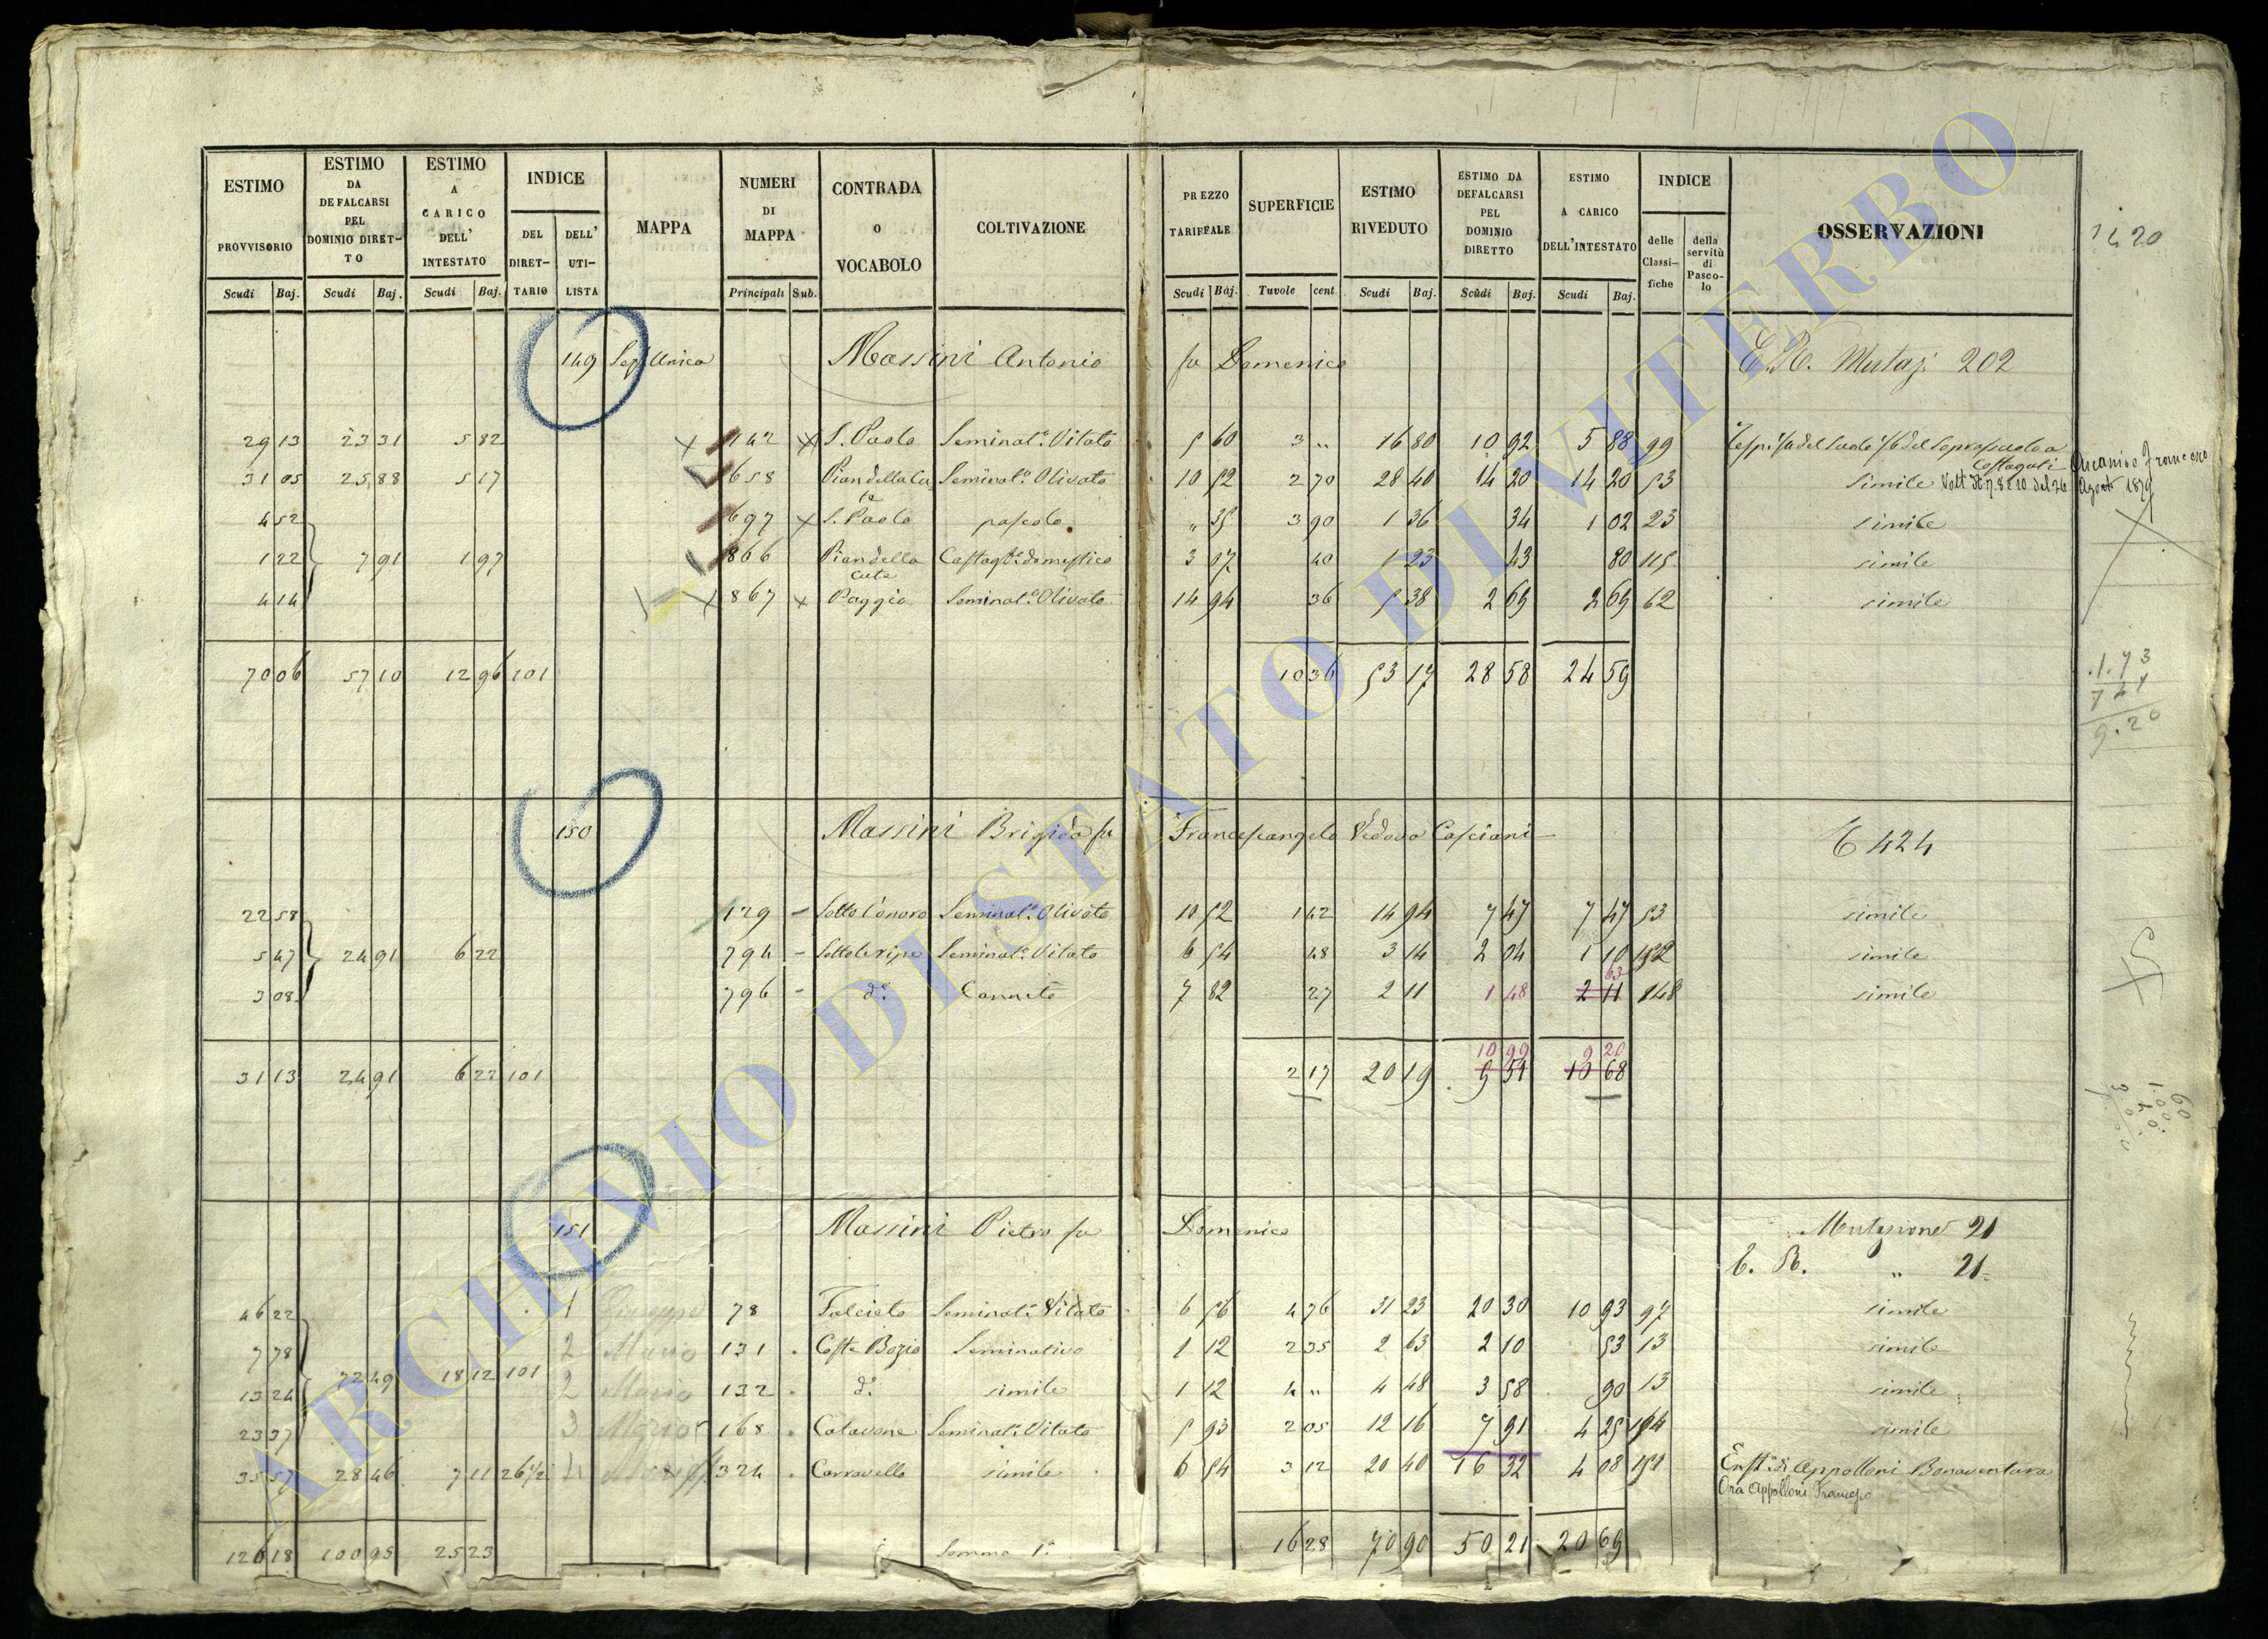 ESTIMO PROVVISORIO Scudi Baj.
ESTIMO DA DEFALCARSI PEL DOMINIO DIRETTO Scudi Baj.
ESTIMO A CARICO DELL' INTESTATO Scudi Baj.
INDICE DEL DIRETTARIO DELL' UTILISTA
MAPPA
NUMERI DI MAPPA Principali Sub.
CONTRADA O VOCABOLO
COLTIVAZIONE
PREZZO TARIFFALE Scudi Baj.
SUPERFICIE Tavole cent
ESTIMO RIVEDUTO Scudi Baj.
ESTIMO DA DEFALCARSI PEL DOMINIO DIRETTO Scudi Baj.
ESTIMO A CARICO DELL'INTESTATO Scudi Baj.
INDICE delle Classifiche della servitù di Pascolo
OSSERVAZIONI
149 Unica Massini Antonio fu Domenico 202
29 13 23 31 5 82 142 S. Paolo Seminat.o Vitato 5 60 3 „ 16 80 10 92 5 88 99
31 05 25 88 5 17 658 Seminat.o Olivato 10 52 2 70 28 40 14 20 14 20 53 simile
4 52 697 S. Paolo pascolo „ 35 3 90 1 36 34 1 02 23 simile
1 22 7 91 1 97 866 Piandella Castag.o domestico 3 07 40 1 23 43 80 115 simile
4 14 867 Poggio Seminat.o Olivato 14 94 36 5 38 2 69 2 69 62 simile
70 06 57 10 12 96 101 10 36 53 17 28 58 24 59
150 Massini Brigida fu Francescangelo Vedova Casciani 424
22 58 129 Seminat.o Olivato 10 52 1 42 14 94 7 47 7 47 53 simile
5 47 24 91 6 22 794 Sotto le ripe Seminat.o Vitato 6 54 48 3 14 2 04 1 10 152 simile
63
3 08 796 d.o Canneto 7 82 27 2 11 1 48 2 11 148 simile
10 99 9 20
31 13 24 91 6 22 101 2 17 20 19 9 51 10 68
151 Massini Pietro fu Domenico Mutazione 21
„ 21
46 22 1 78 Falcieto Seminat.o Vitato 6 56 4 76 31 23 20 30 10 93 97 simile
7 78 2 Mario 131 Coste Bozio Seminativo 1 12 2 35 2 63 2 10 53 13 simile
13 24 72 49 18 12 101 2 Mario 132 d.o simile 1 12 4 „ 4 48 3 58 90 13 simile
23 37 3 168 Seminat.o Vitato 5 93 2 05 12 16 7 91 4 25 simile
35 57 28 46 7 11 26 1/2 324 simile 6 54 3 12 20 40 16 32 4 08 151 Enft.a di Appolloni Bonaventura
Ora Appolloni
126 18 100 95 25 23 Somma 1.a 16 28 70 90 50 21 20 69
ARCHIVIO DI STATO DI VITERBO